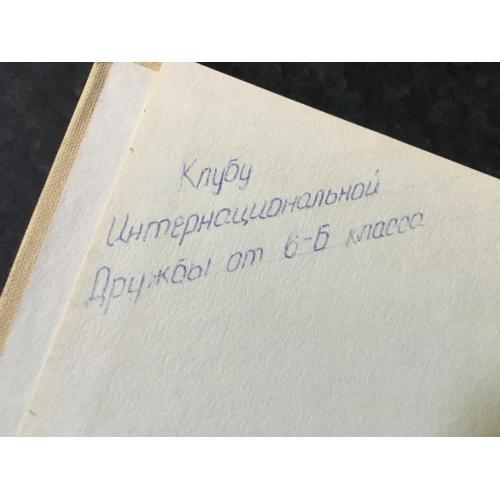 Клубу
Интернациональной
Дружбы от 6-Б класса